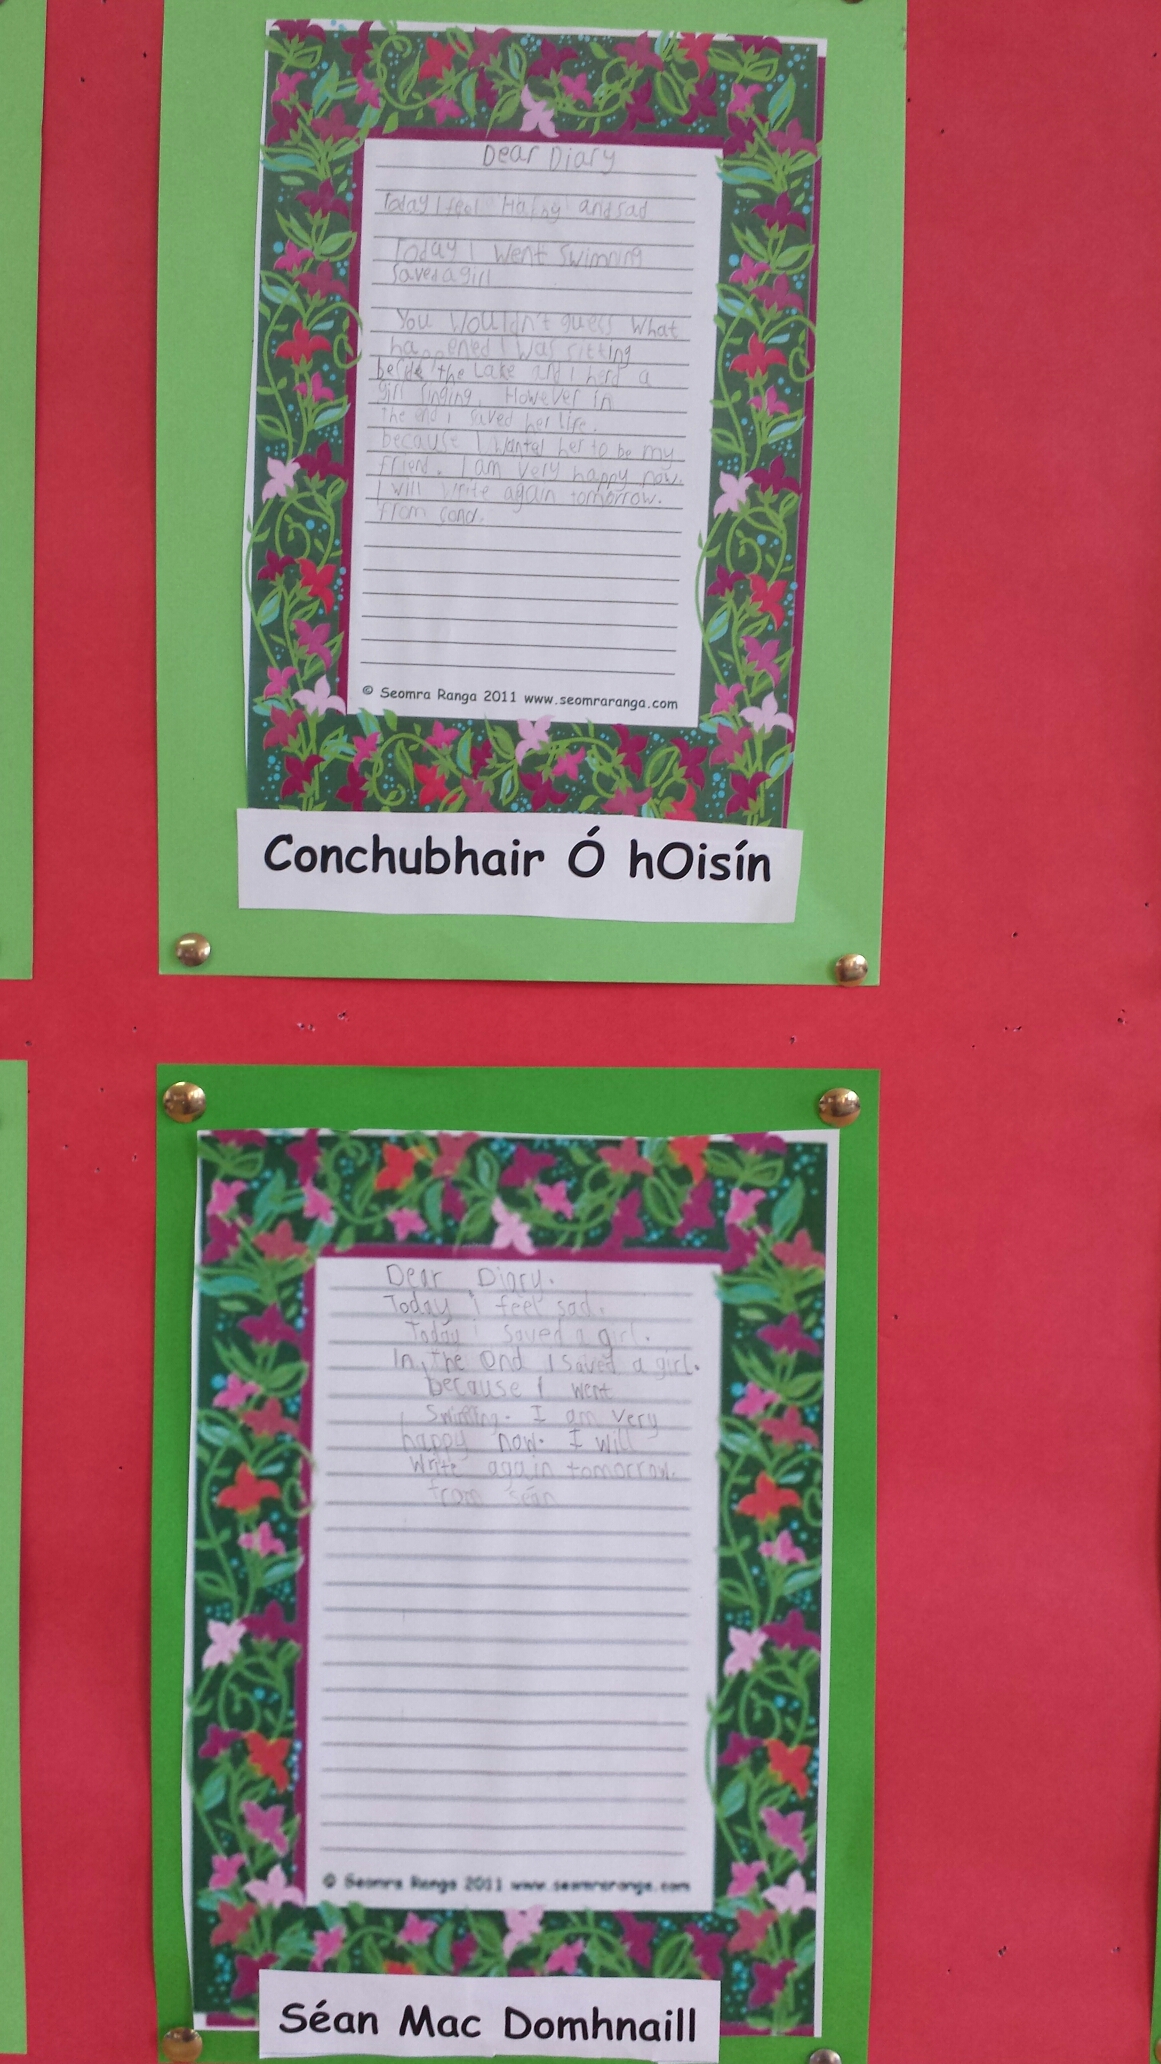 Dear Diary
Today I feel Happy and sad
Today I went Swimning
Saved a girl
You Wouldn't guess What
happened I was sitting
beside the Lake and I herd a
girl singing. However in
the end i saved her life.
because I wanted her to be my
friend. I am very happy now.
I will write again tomorrow.
from
© Seomra Ranga 2011 www.seomraranga.com
Conchubhair Ó hOisín
Dear Diary.
Today i feel sad.
Today i saved a girl.
In the end I saved a girl.
because I went
Swiming. I am very
happy now. I will
Write again tomorrow.
from Séan
© Seomra Ranga 2011 www.seomraranga.com
Séan Mac Domhnaill